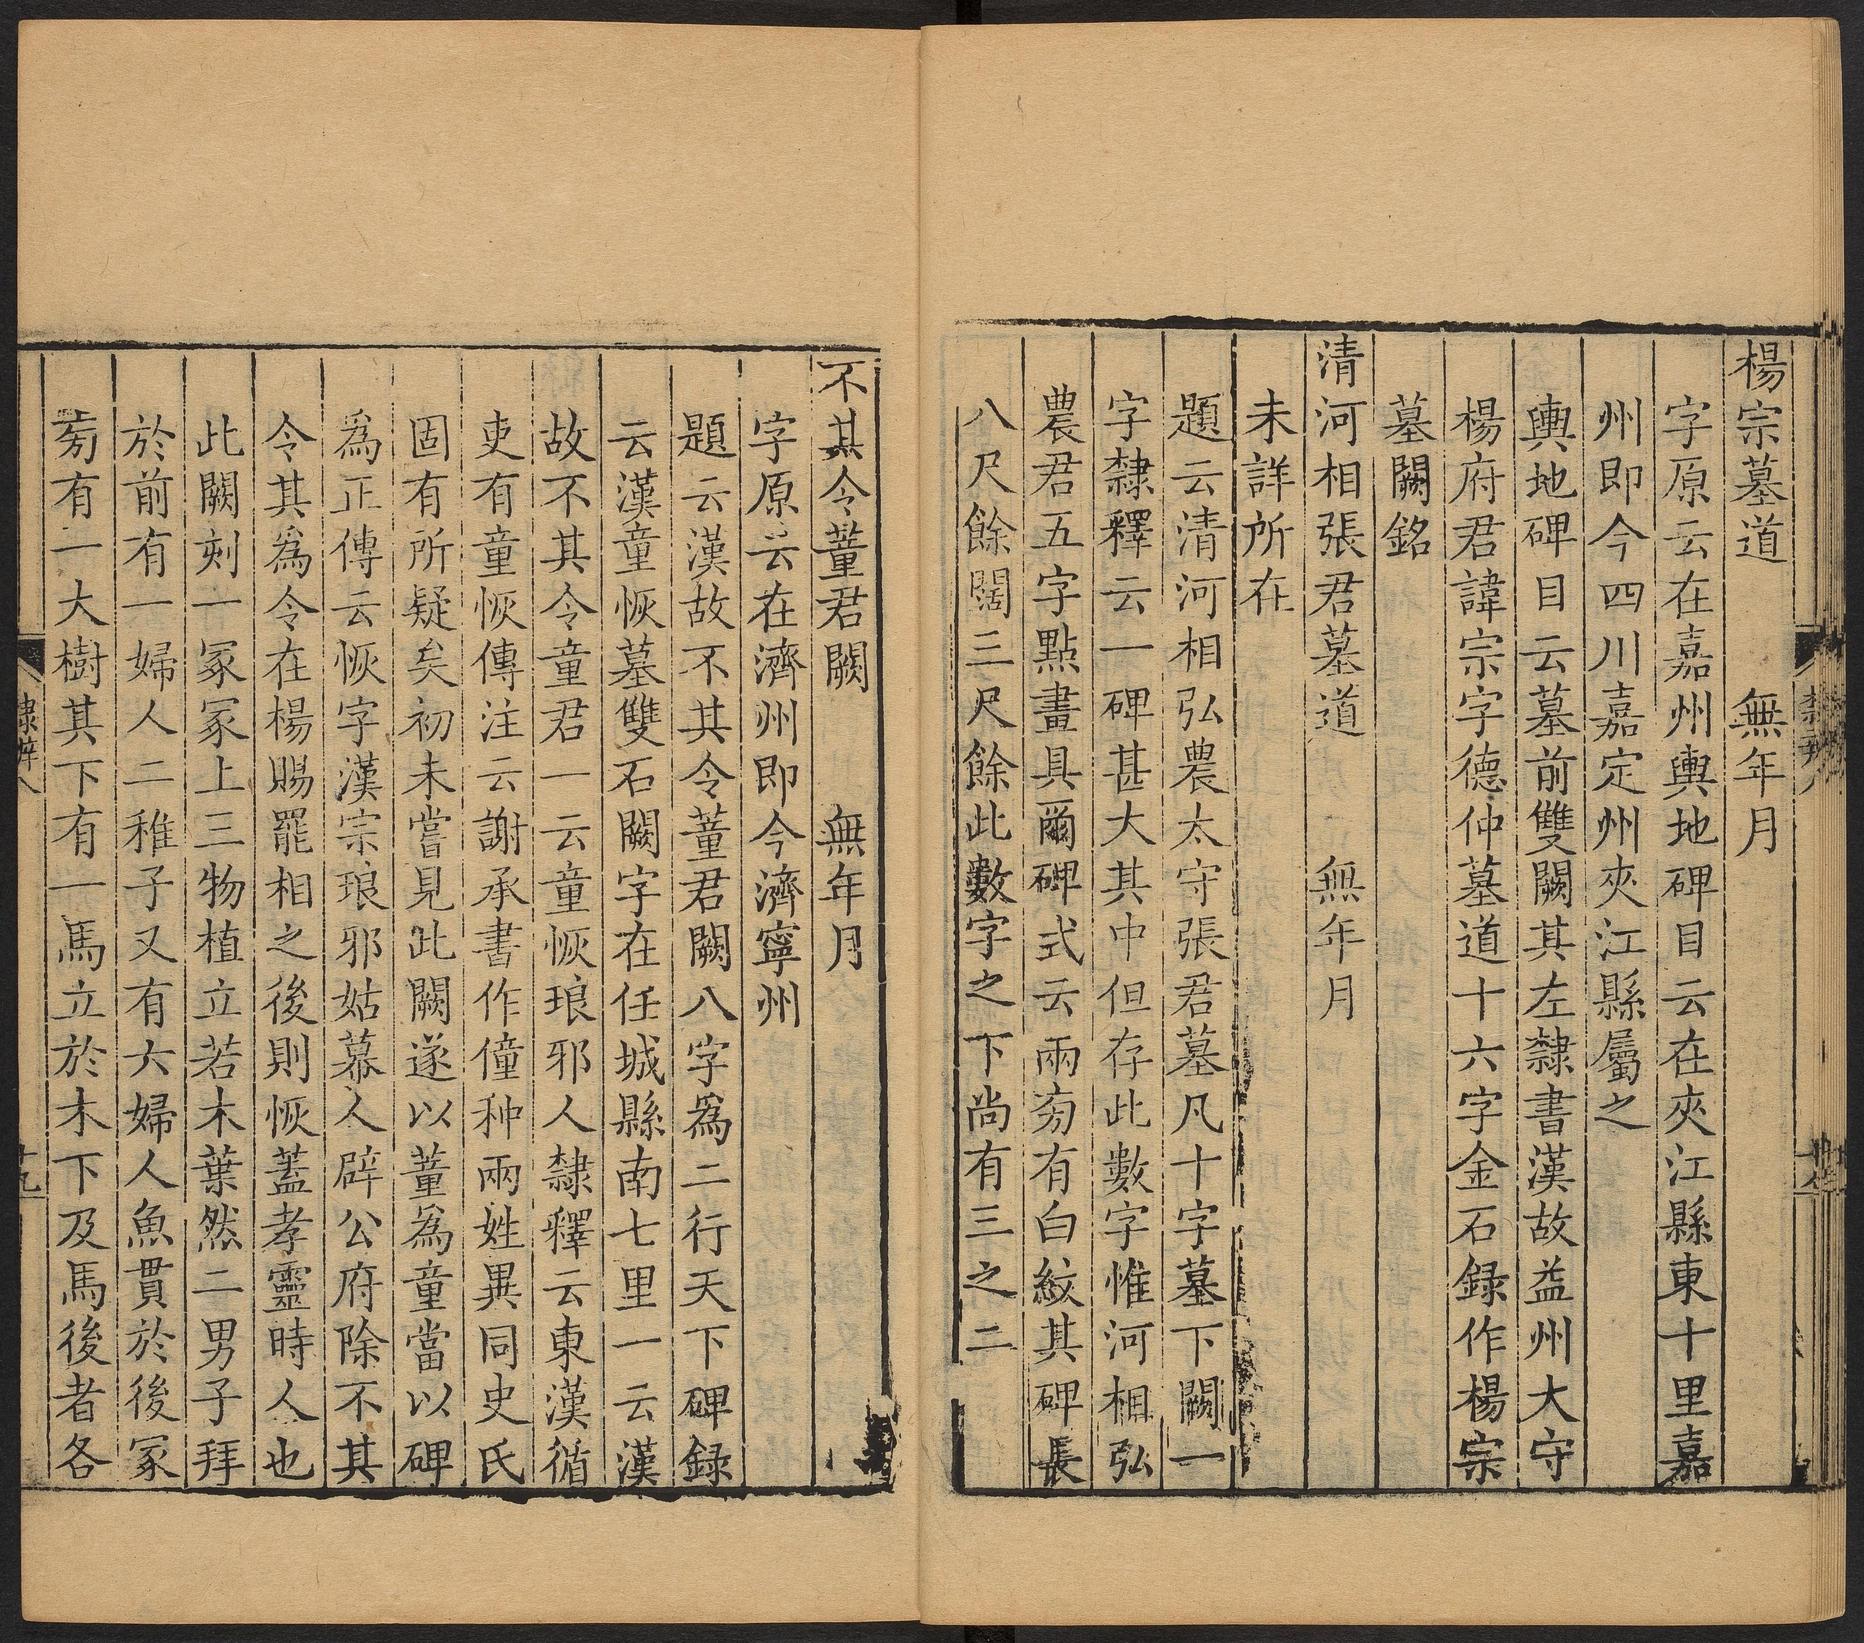 楊宗墓道　　無年月
字原云在嘉州輿地碑目云在夾江縣東十里嘉
州即今四川嘉定州夾江縣屬之
輿地碑目云墓前雙闕其左隸書漢故益州大守
楊府君諱宗字德仲墓道十六字金石録作楊宗
墓闕銘
清河相張君墓道　　無年月
未詳所在
題云清河相弘農太守張君墓凡十字墓下闕一
字隸釋云一碑甚大其中但存此數字惟河相弘
農君五字點畫具爾碑式云兩旁有白紋其碑長
八尺餘闊三尺餘此數字之下尚有三之二
不其令董君闕　　無年月
字原云在濟州即今濟寧州
題云漢故不其令董君闕八字爲二行天下碑録
云漢童恢墓雙石闕字在任城縣南七里一云漢
故不其令童君一云童恢琅邪人隸釋云東漢循
吏有童恢傳注云謝承書作僮种兩姓異同史氏
固有所疑矣初未嘗見此闕遂以董爲童當以碑
爲正傳云恢字漢宗琅邪姑幕人辟公府除不其
令其爲令在楊賜罷相之後則恢蓋孝靈時人也
此闕刻一冢冢上三物植立若木葉然二男子拜
於前有一婦人二稚子又有六婦人魚貫於後冢
旁有一大樹其下有一馬立於木下及馬後者各
隸辨八
十九